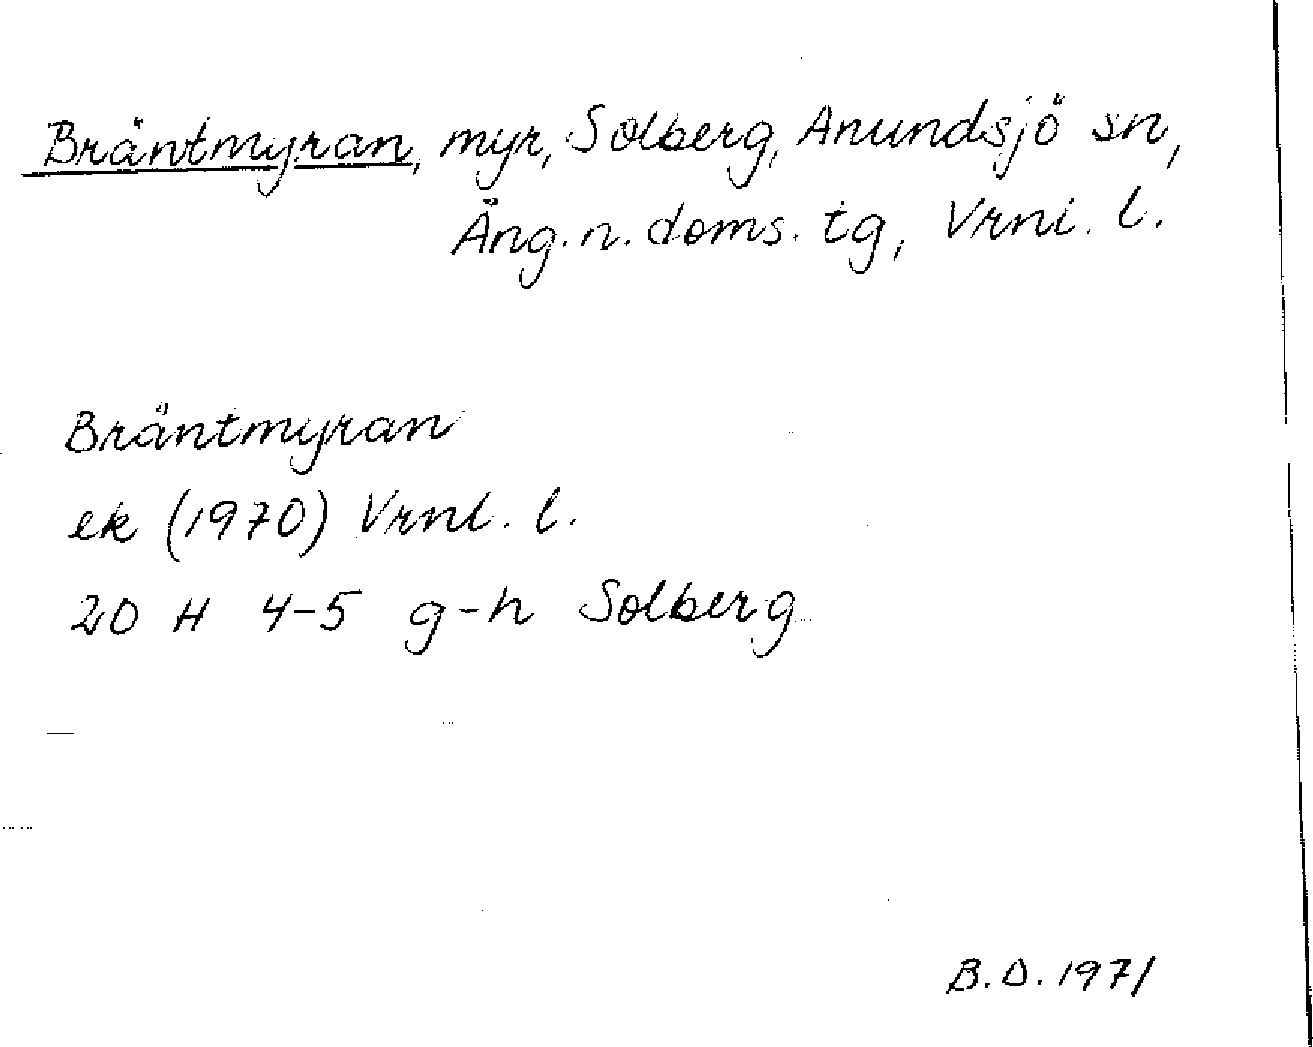 Bräntmyran, myr, Solberg, Anundsjö sn,
Äng. n. doms. tg, Vrnl. l.
Bräntmyran
ek (1970) Vrnl. l.
20 H 4-5 g-h Solberg
B.D. 1971